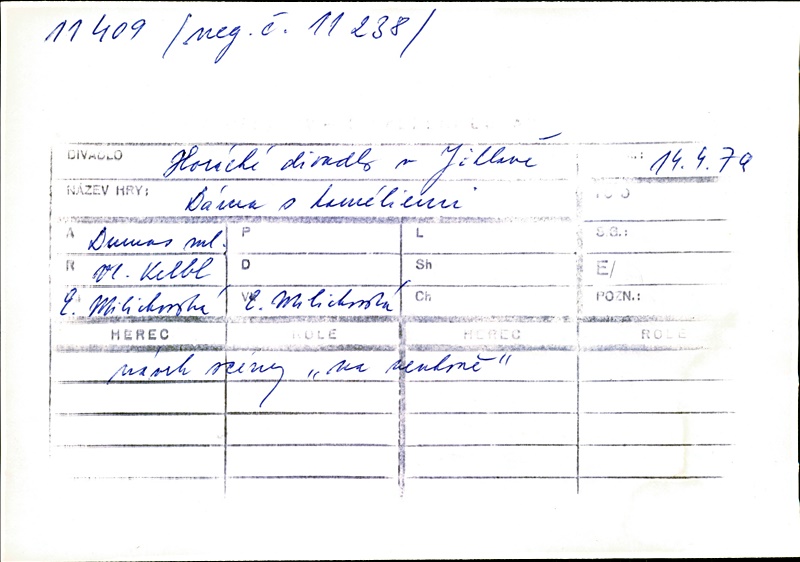 11409 /neg. č. 11238/
DIVADLO Horácké divadlo v Jihlavě 14. 4. 79
NÁZEV HRY: Dáma s kaméliemi
A Dumas ml. P L S.G.:
R Vl. Kelbl D Sh E/
E. Milichovská V E. Milichovská Ch POZN.:
HEREC ROLE HEREC ROLE
návrh scény „na venkově"